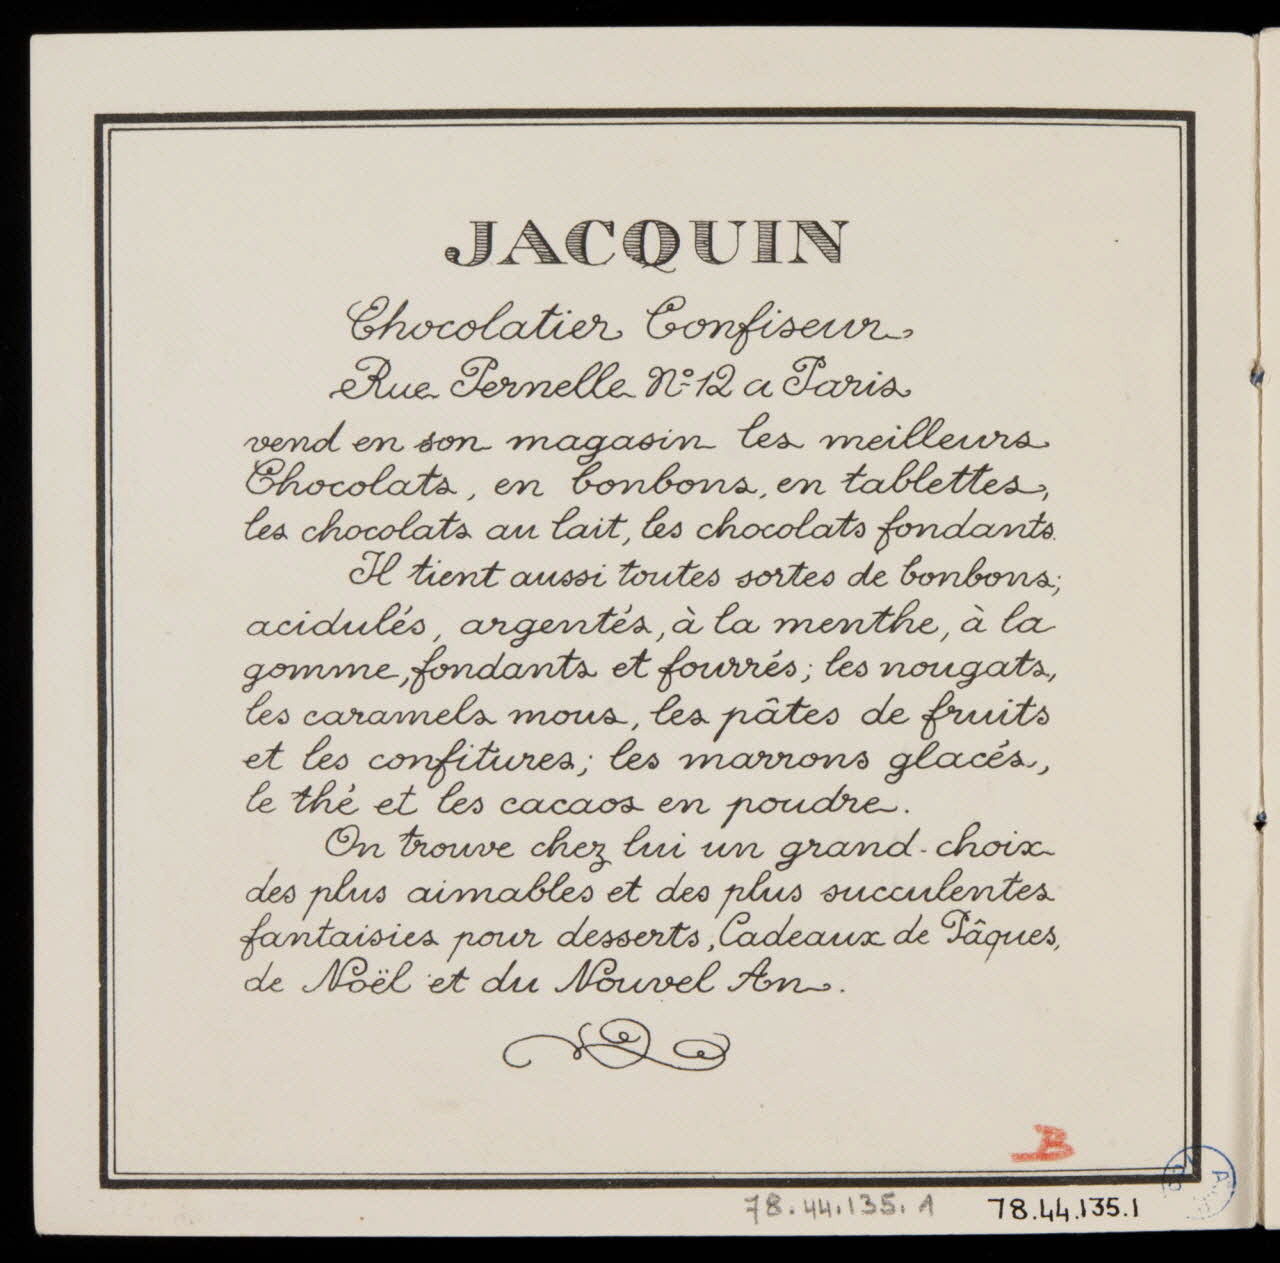 JACQUIN
Chocolatier Confiseur
Rue Pernelle No 12 a Paris
vend en son magasin les meilleurs
Chocolats, en bonbons, en tablettes,
les chocolats au lait, les chocolats fondants.
Il tient aussi toutes sortes de bonbons;
acidulés, argentés, à la menthe, à la
gomme, fondants et fourrés; les nougats,
les caramels mous, les pâtes de fruits
et les confitures; les marrons glacés,
le thé et les cacaos en poudre.
On trouve chez lui un grand choix
des plus aimables et des plus succulentes
fantaisies pour desserts, Cadeaux de Pâques,
de Noël et du Nouvel An.
B
78.44.135.1 78.44.135.1